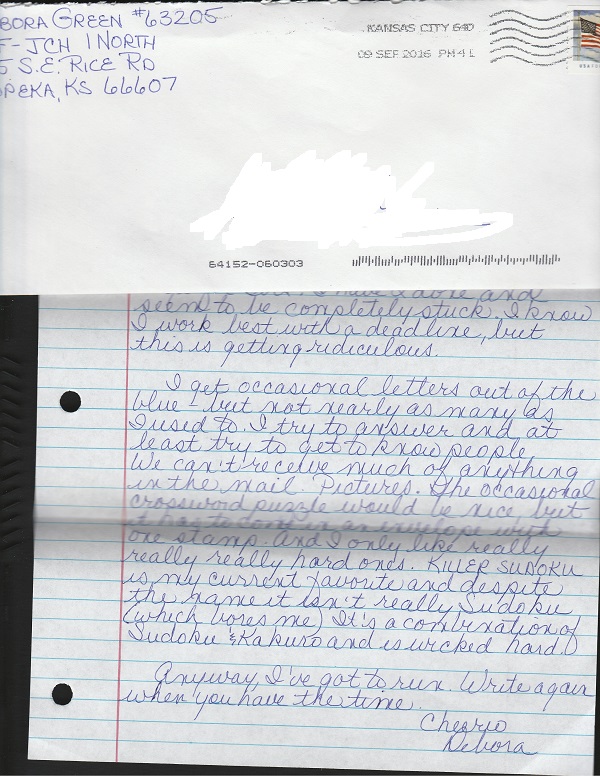 BORA GREEN #63205
F-JCH 1 NORTH
5 S.E. RICE RD
PEKA, KS 66607
KANSAS CITY 640
09 SEP 2016 PM 4 L
64152-060303
I have done and
seem to be completely stuck. I know
I work best with a deadline, but
this is getting ridiculous.
I get occasional letters out of the
blue - but not nearly as many as
I used to. I try to answer and at
least try to get to know people.
We can't receive much of anything
in the mail. Pictures. The occasional
crossword puzzle would be nice but
it has to come in an envelope with
one stamp. And I only like really
really really hard ones. KILLER SUDOKU
is my current favorite and despite
the name it isn't really Sudoku
(which bores me) It's a combination of
Sudoku & Kakuro and is wicked hard.)
Anyway, I've got to run. Write again
when you have the time.
Cheerio
Debora